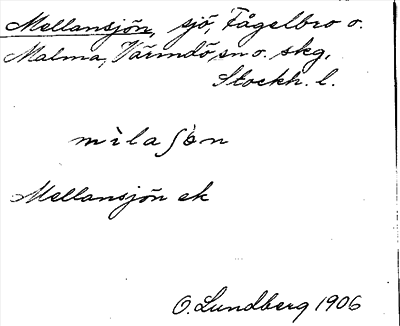 Mellansjön, sjö, Fågelbro o.
Malma, Värmdö, sn o. skg,
Stockh. l.
mìlaʃön
Mellansjön ek
O. Lundberg 1906